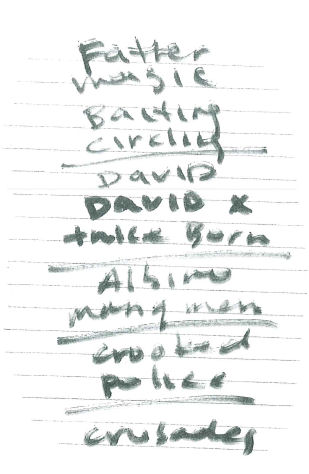 Father
music
Baiting
circling
DAVID
DAVID x
twice Born
Albino
many men
crooked
police
crusades